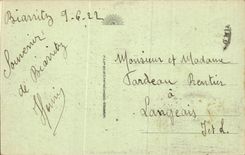 Biarritz 9-6-22
Souvenir
de Biarritz
Monsieur et Madame
Tardeau Rentier
à
Langeais
I et L.